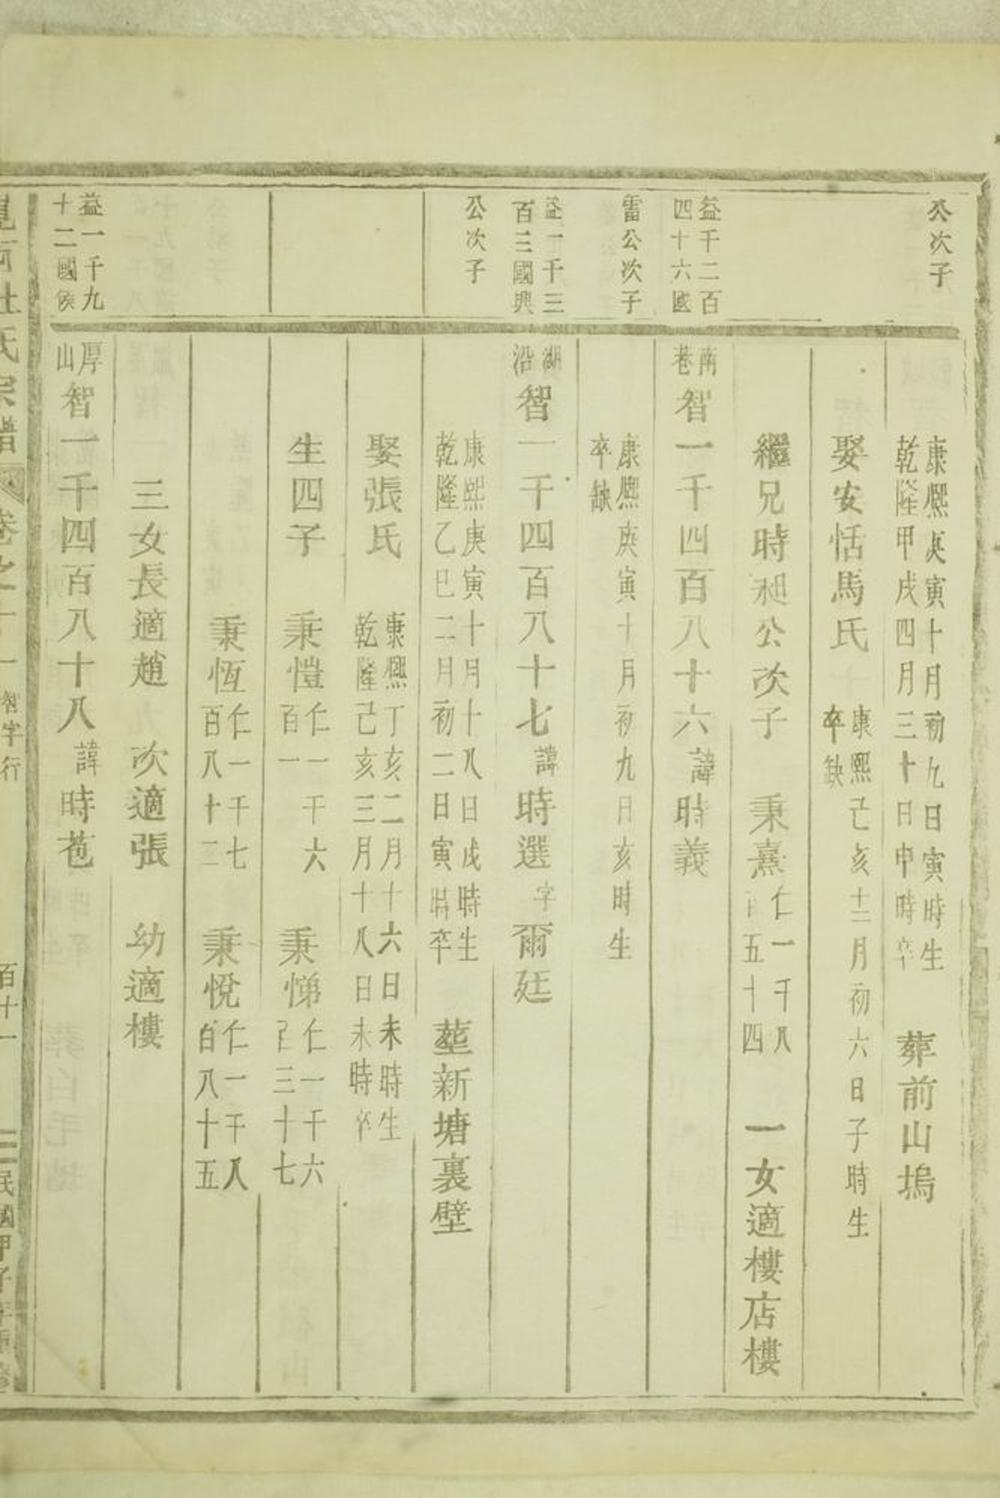 公次子
康熙庚寅十月初九日寅時生
乾隆甲戌四月三十日申時卒
葬前山塢
娶安恬馬氏
康熙己亥十二月初六日子時生
卒缺
繼兄時昶公次子
秉熹
仁一千八
百五十四
一女適樓店樓
益千二百
四十六國
雷公次子
南
巷
智一千四百八十六
諱
時義
康熙庚寅十月初九日亥時生
卒缺
益一千三
百三國興
公次子
湖
沿
智一千四百八十七
諱
時選
字
爾廷
康熙庚寅十月十八日戌時生
乾隆乙巳二月初二日寅時卒
塟新塘裏壁
娶張氏
康熙丁亥二月十六日未時生
乾隆己亥三月十八日未時卒
生四子
秉愷
仁一千六
百一
秉悌
仁一千六
百三十七
秉恆
仁一千七
百八十二
秉悅
仁一千八
百八十五
三女長適趙
次適張
幼適樓
益一千九
十二國侯
厚
山
智一千四百八十八
諱
時苞
杜氏宗譜
卷之十一
智字行
百十一
民國甲子年重修